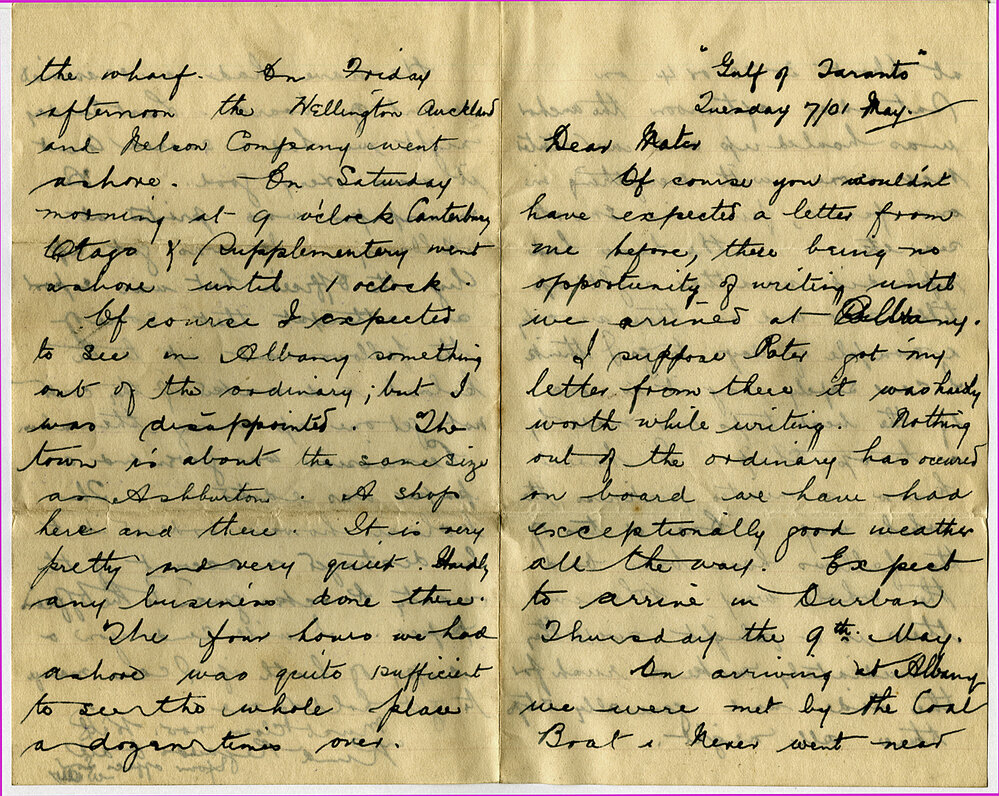 "Gulf of Taranto"
Tuesday 7/01 May.
Dear Mater
Of course you wouldn't
have expected a letter from
me before, there being no
opportunity of writing until
we arrived at Albany.
I suppose Pater got my
letter from there it was hardly
worth while writing. Nothing
out of the ordinary has occured
on board we have had
exceptionally good weather
all the way. Expect
to arrive in Durban
Thursday the 9th. May.
On arriving at Albany
we were met by the Coal
Boat & Never went near
the wharf. On Friday
afternoon the Wellington Auckland
and Nelson Company went
ashore. On Saturday
morning at 9 o'clock Canterbury
Otago & Supplementary went
ashore until 1 oclock.
Of course I expected
to see in Albany something
out of the ordinary; but I
was disappointed. The
town is about the same size
as Ashburton. A shop
here and there. It is very
pretty and very quiet. Hardly
any business done there.
The four hours we had
ashore was quite sufficient
to see the whole place
a dozen times over.